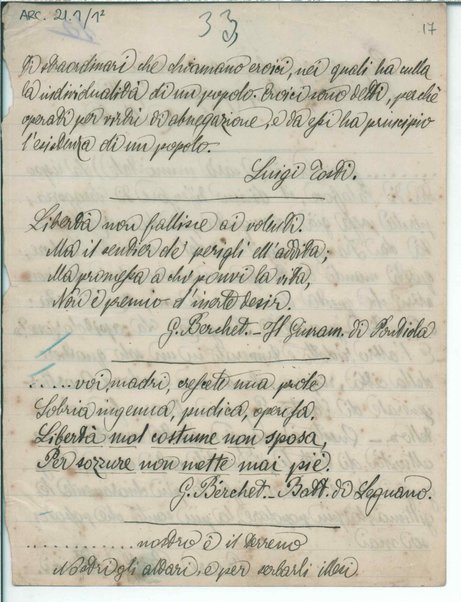 ARC. 21.1/1²
33
17
ti straordinari che chiamano eroici, nei quali ha culla
la individualità di un popolo. Eroici sono detti, perchè
operati per virtù di abnegazione, e da essi ha principio
l'esistenza di un popolo.
Luigi Tosti.
Libertà non fallisce ai volenti.
Ma il sentier de' perigli ell'addita;
Ma promessa a chi ponvi la vita,
Non è premio d'inerte desir.
G. Berchet. - Il Giuram. di Pontida
......voi madri, crescete una prole
Sobria ingenua, pudica, operosa.
Libertà mal costume non sposa,
Per sozzure non mette mai piè.
G. Berchet - Batt. di Legnano.
.................nostro è il terreno
Nostri gli altari, e per serbarli illesi